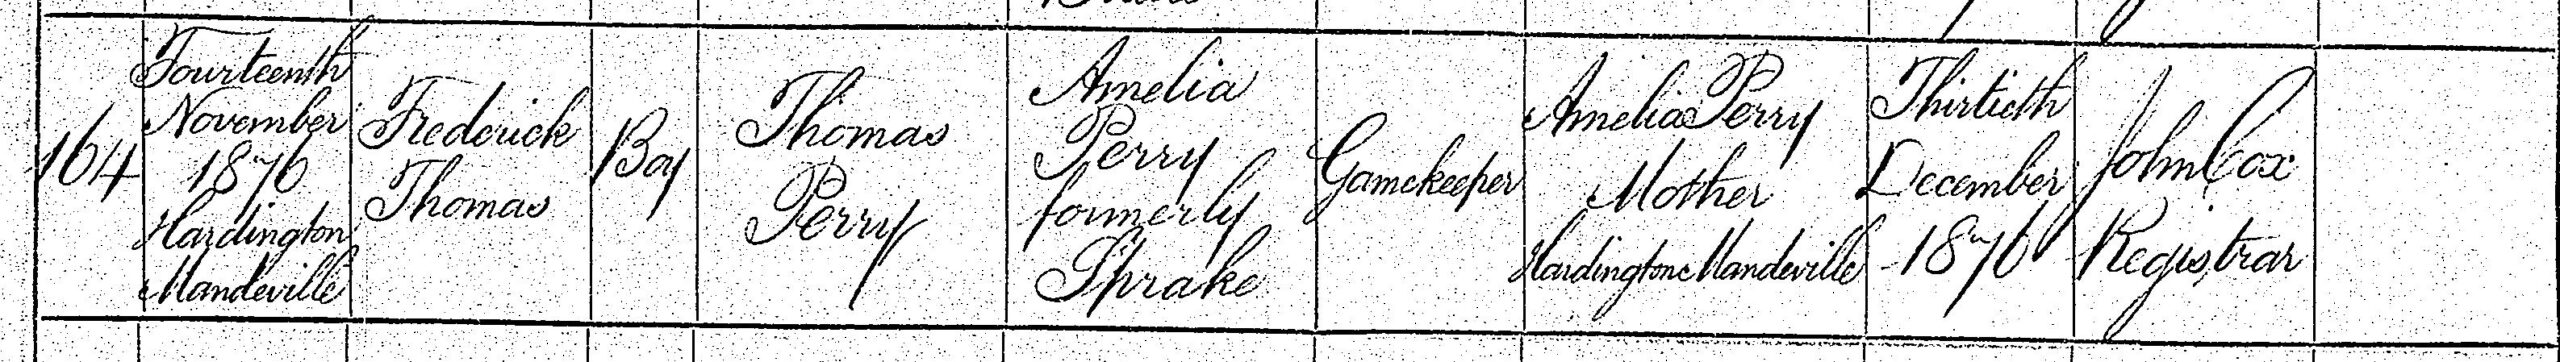 164
Fourteenth
November
1876
Hardington
Mandeville
Frederick
Thomas
Boy
Thomas
Perry
Amelia
Perry
formerly
Sprake
Gamekeeper
Amelia Perry
Mother
Hardington Mandeville
Thirtieth
December
1876
John Cox
Registrar